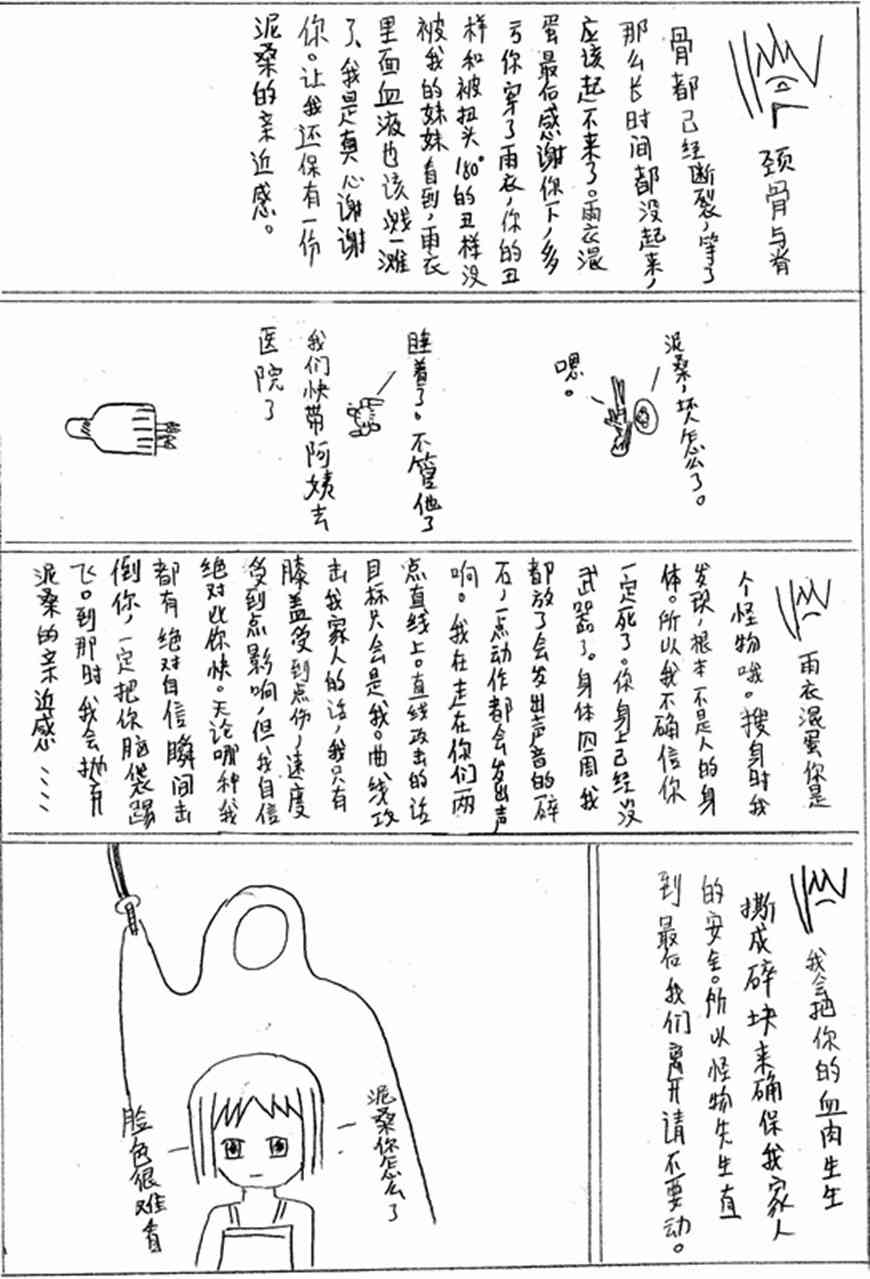 颈骨与脊
骨都已经断裂，等了
那么长时间都没起来，
应该起不来了。雨衣混
蛋最后感谢你下，多
亏你穿了雨衣，你的丑
样和被扭头180°的丑样没
被我的妹妹看到，雨衣
里面血液也该溅一滩
了、我是真心谢谢
你。让我还保有一份
泥桑的亲近感。
泥桑，坏人怎么了。
嗯。
睡着了。不管他了
我们快带阿姨去
医院了
雨衣混蛋你是
个怪物哦。搜身时我
发现，根本不是人的身
体。所以我不确信你
一定死了。你身上已经没
武器了。身体四周我
都放了会发出声音的碎
石，一点动作都会发出声
响。我在走在你们两
点直线上。直线攻击的话
目标只会是我。曲线攻
击我家人的话，我只有
膝盖受到点伤，速度
受到点影响，但我自信
绝对比你快。无论哪种我
都有绝对自信瞬间击
倒你，一定把你脑袋踢
飞。到那时我会抛弃
泥桑的亲近感、、、
我会把你的血肉生生
撕成碎块来确保我家人
的安全。所以怪物先生直
到最后我们离开请不要动。
泥桑你怎么了
脸色很难看